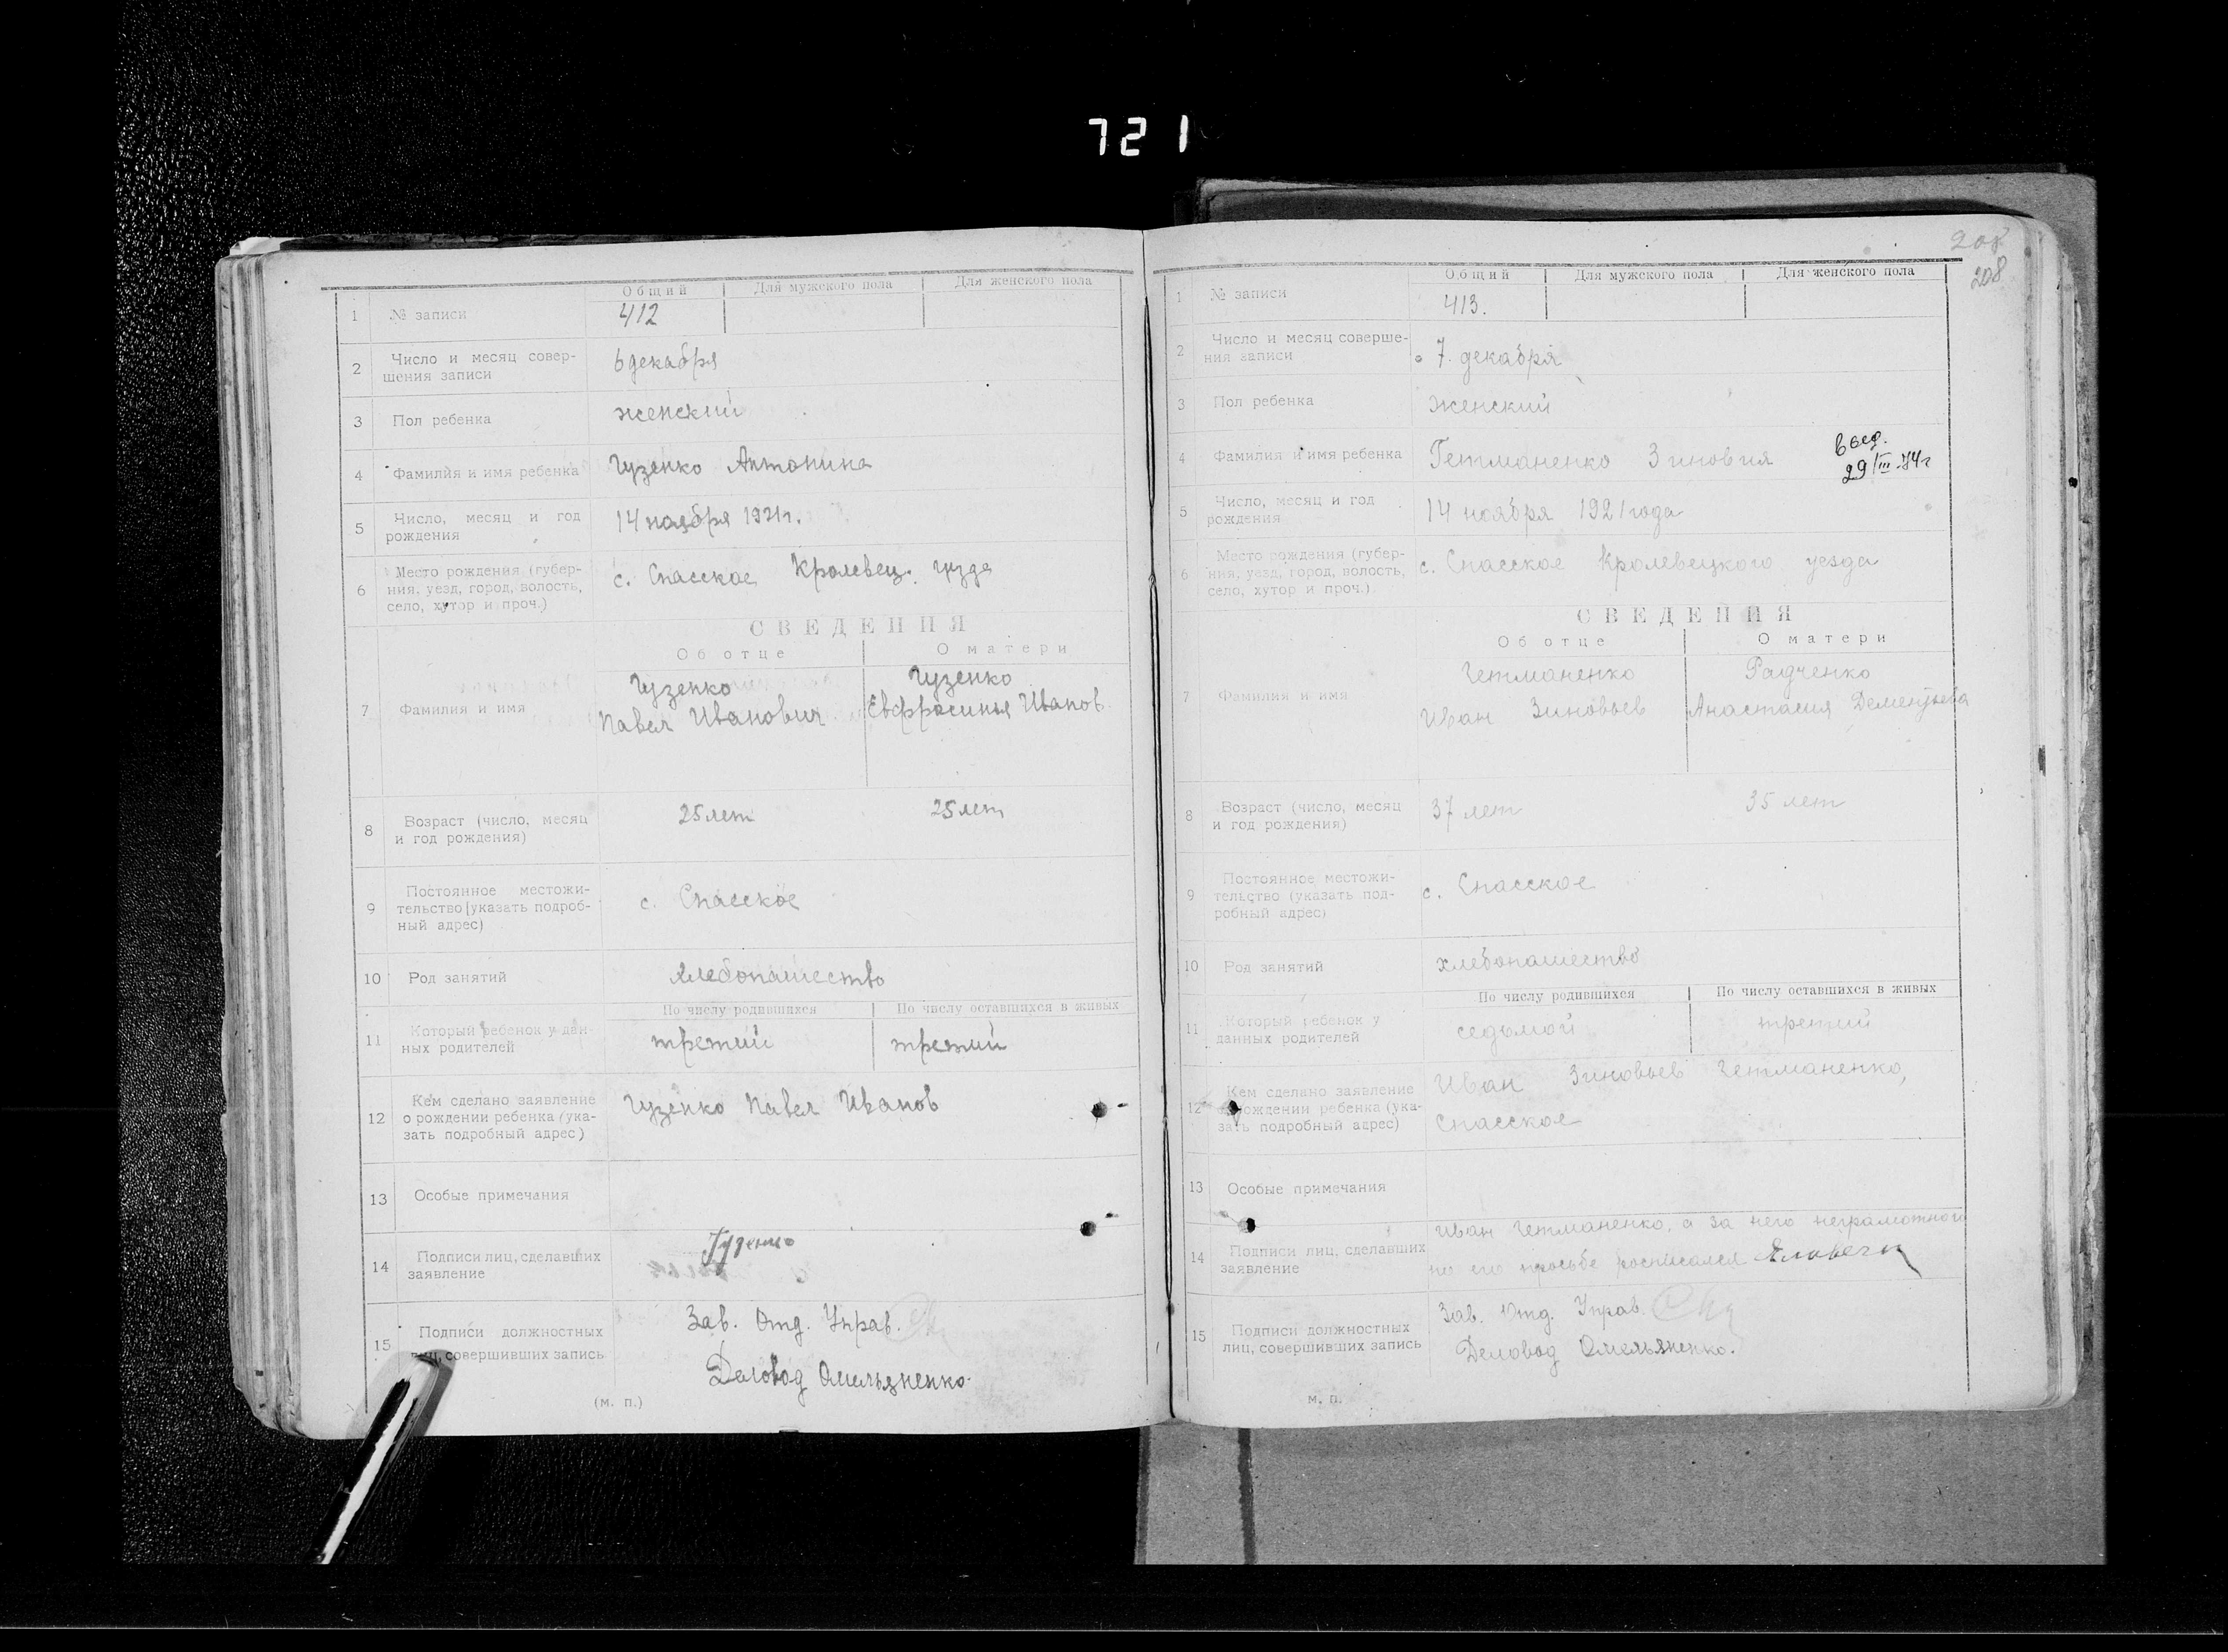 721
Общий Для мужского пола Для женского пола
1 № записи 412
2 Число и месяц совер-
шения записи
6 декабря
3 Пол ребенка женский
4 Фамилия и имя ребенка Гузенко Антонина
5 Число, месяц и год
рождения
14 ноября 1921 г.
6 Место рождения (губер-
ния, уезд, город, волость,
село, хутор и проч.)
с. Спасское Кролевец. уезда
СВЕДЕНИЯ
Об отце О матери
7 Фамилия и имя
Гузенко Гузенко
Павел Иванович Евфросинья Иванов
8 Возраст (число, месяц
и год рождения)
25 лет 25 лет
9 Постоянное местожи-
тельство (указать подроб-
ный адрес)
с. Спасское
10 Род занятий хлебопашество
По числу родившихся По числу оставшихся в живых
11 Который ребенок у дан-
ных родителей
третий третий
12 Кем сделано заявление
о рождении ребенка (ука-
зать подробный адрес)
Гузенко Павел Иванов
13 Особые примечания
14 Подписи лиц, сделавших
заявление
Гузенко
15 Подписи должностных
лиц, совершивших запись
Зав. Отд. Управ.
Деловод Омельяненко.
(м. п.)
208
208
Общий Для мужского пола Для женского пола
1 № записи 413.
2 Число и месяц соверше-
ния записи
7. декабря
3 Пол ребенка Женский
4 Фамилия и имя ребенка Гетманенко Зиновия
29/III-74г
5 Число, месяц и год
рождения
14 ноября 1921 года
6 Место рождения (губер-
ния, уезд, город, волость,
село, хутор и проч.)
с. Спасское Кролевецкого уезда
СВЕДЕНИЯ
Об отце О матери
7 Фамилия и имя
Гетманенко Радченко
Иван Зиновьев Анастасия Дементьева
8 Возраст (число, месяц
и год рождения)
37 лет 35 лет
9 Постоянное местожи-
тельство (указать под-
робный адрес)
с. Спасское
10 Род занятий хлебопашество
По числу родившихся По числу оставшихся в живых
11 Который ребенок у
данных родителей
седьмой третий
12 Кем сделано заявление
о рождении ребенка (ука-
зать подробный адрес)
Иван Зиновьев Гетманенко,
Спасское
13 Особые примечания
14 Подписи лиц, сделавших
заявление
Иван Гетманенко, а за него неграмотного
по его просьбе росписался
15 Подписи должностных
лиц, совершивших запись
Зав. Отд. Управ.
Деловод Омельяненко.
м. п.